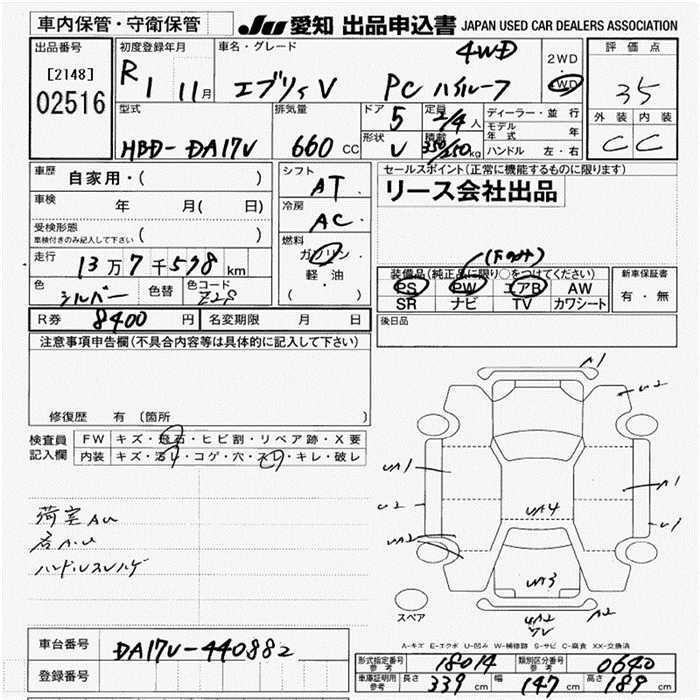 車内保管・守衛保管 JU 愛知 出品申込書 JAPAN USED CAR DEALERS ASSOCIATION
出品番号 [2148] 02516
初度登録年月 R1 11月
車名・グレード エブリィV PC ハイルーフ 4WD
2WD 4WD
評価点 35
外装 内装
C C
型式 HBD-DA17V
排気量 660 CC
ドア 5
形状 V
定員 2/4人
積載 350/250kg
ディーラー・並行
モデル年式 年
ハンドル 左・右
車歴 自家用・( )
車検 年 月( 日)
受検形態 車検付きのみ記入して下さい ( )
走行 13万7千598km
色 シルバー 色替 色コード Z2S
シフト AT
冷房 AC
燃料 ガソリン 軽油 ( )
セールスポイント(正常に機能するものに限ります)
リース会社出品
装備品(純正品に限り○をつけてください)
PS PW エアB AW
SR ナビ TV カワシート
新車保証書 有・無
R券 8400円 名変期限 月 日
後日品
注意事項申告欄(不具合内容等は具体的に記入して下さい)
修復歴 有(箇所
検査員記入欄
FW キズ・飛石・ヒビ割・リペア跡・X要
内装 キズ・汚レ・コゲ・穴・スレ・キレ・破レ
荷室AU
ハンドルスレハゲ
A1
U2
UA1
A1
U2
U1
UA2
UA4
UA3
A2
スペア
A-キズ E-エクボ U-凹み W-補修跡 S-サビ C-腐食 XX-交換済
車台番号 DA17V-440882
登録番号
形式指定番号 参考 18014 類別区分番号 参考 0640
車庫証明用 参考 長さ 339cm 幅 147cm 高さ 189cm